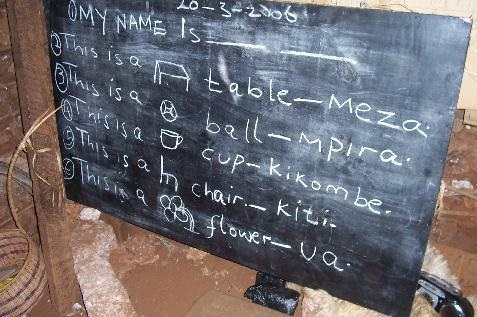 20-3-2006
① MY NAME Is
② This is a table - Meza.
③ This is a ball - Mpira.
④ This is a cup - kikombe.
⑤ This is a chair. - kiti.
⑥ This is a flower - Ua.